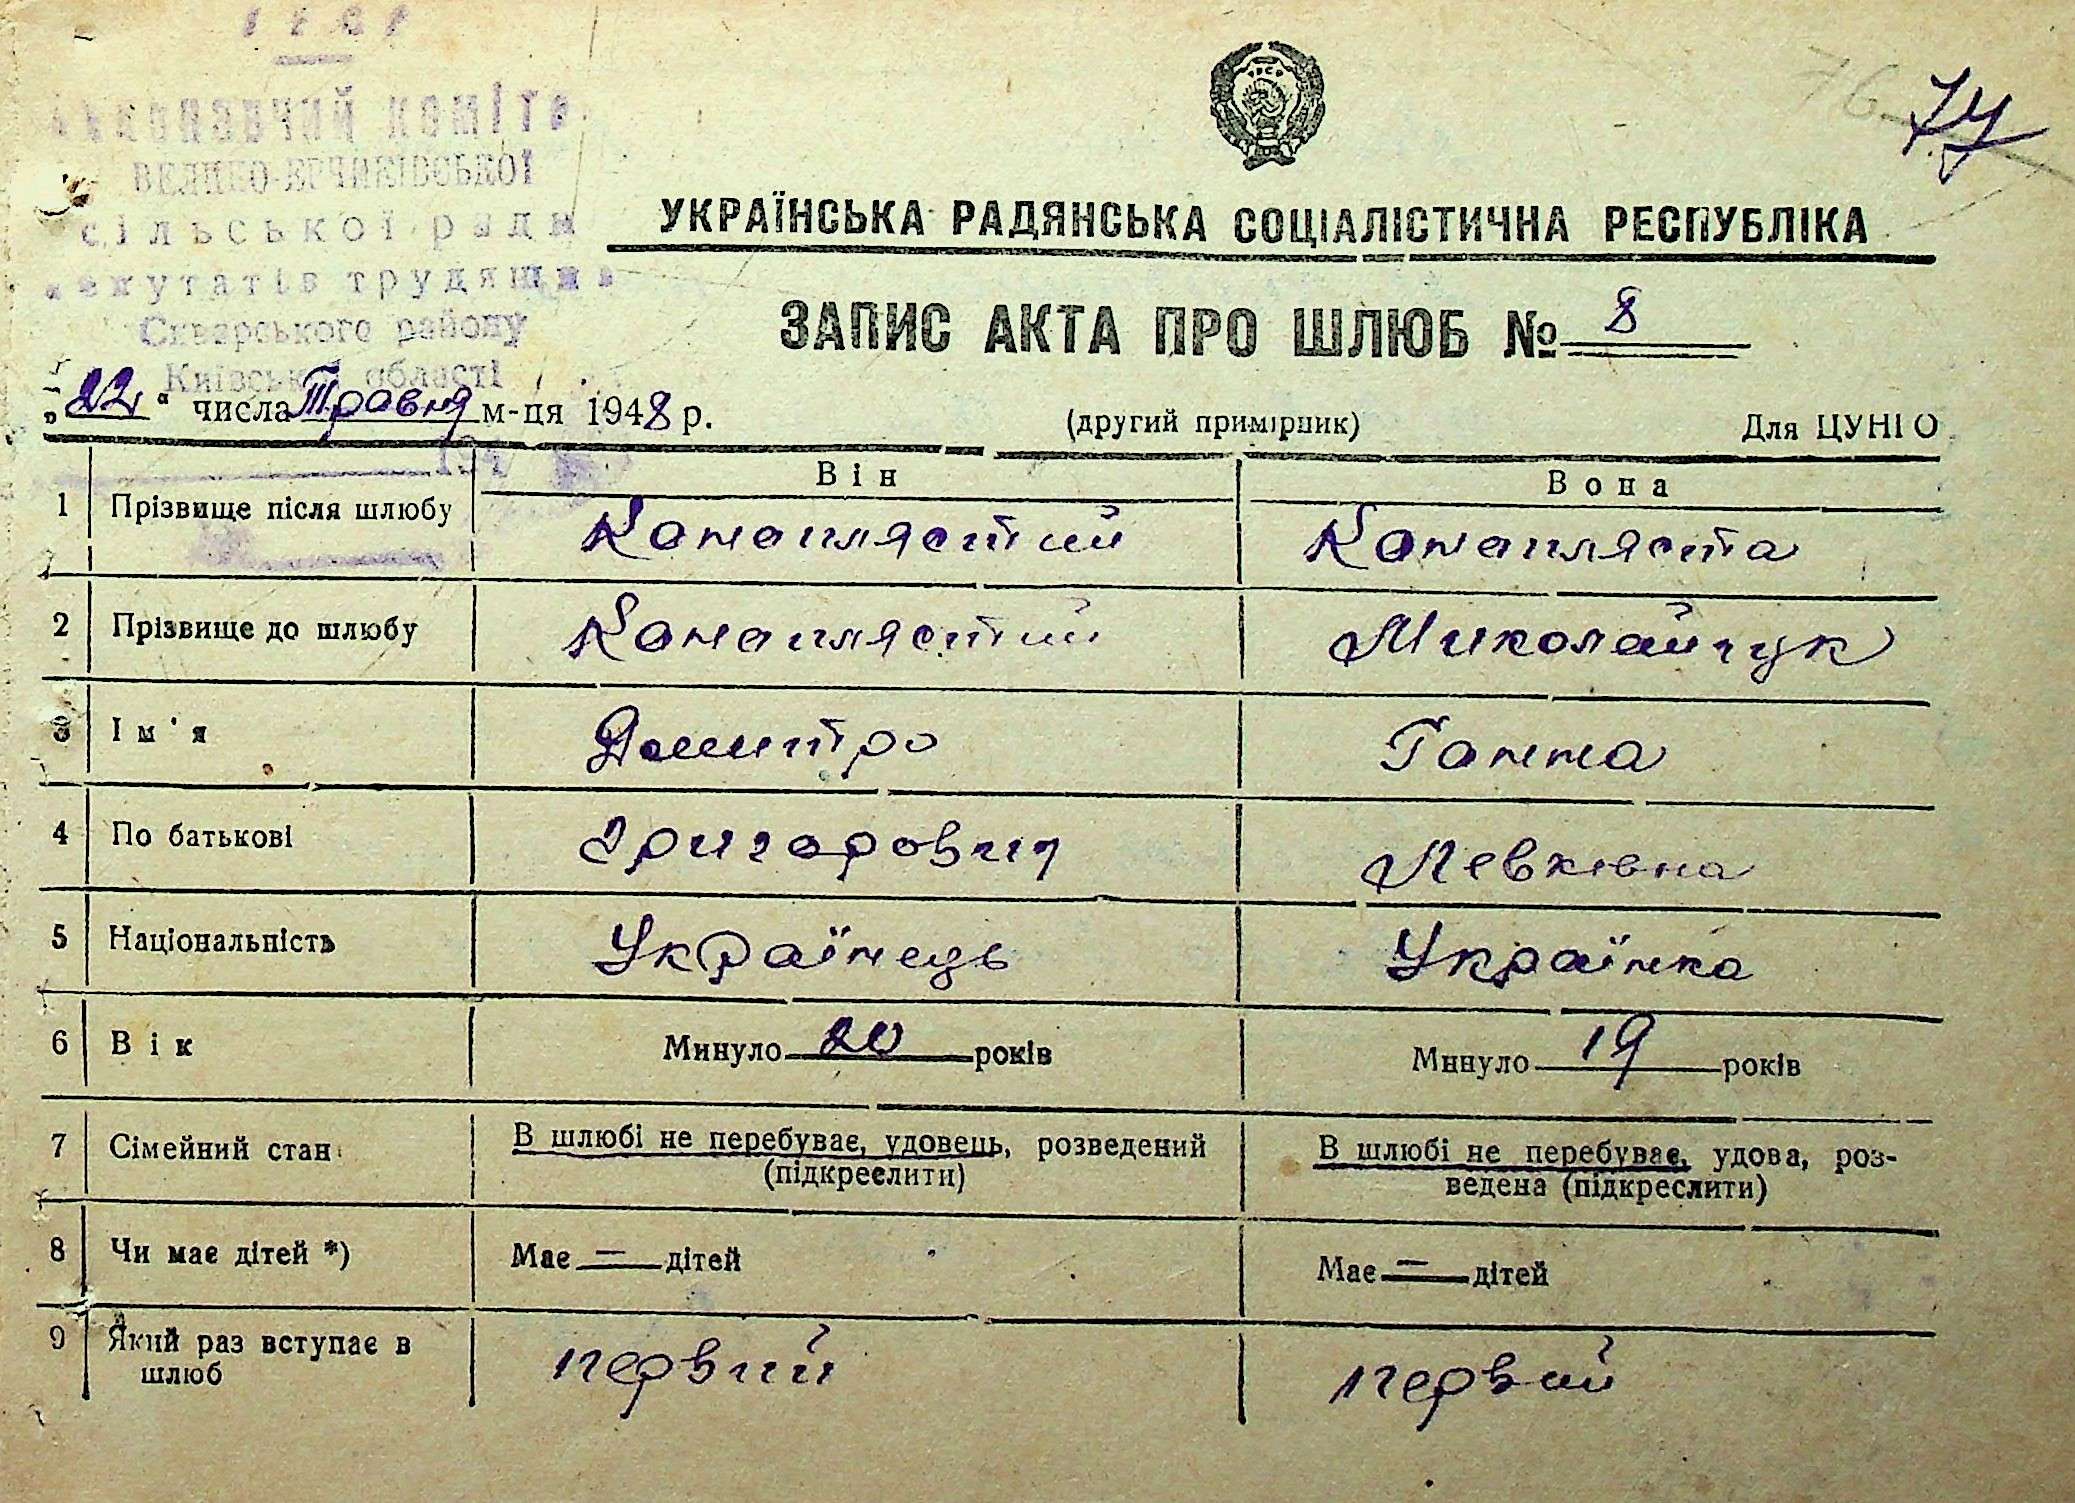 76 77
комітет
ВЕЛИКО-ЕРЧИКІВСЬКОЇ
сільської ради
депутатів трудящих
Сквирського району
Київської області
УКРАЇНСЬКА РАДЯНСЬКА СОЦІАЛІСТИЧНА РЕСПУБЛІКА
ЗАПИС АКТА ПРО ШЛЮБ № 8
„22“ числа Травня м-ця 1948 р. (другий примірник) Для ЦУНГО
Він Вона
1 Прізвище після шлюбу Конопластий Конопляста
2 Прізвище до шлюбу Конопластий Миколайчук
3 Ім'я Домитро Ганна
4 По батькові Григорович Левківна
5 Національність Українець Українка
6 Вік Минуло 20 років Минуло 19 років
7 Сімейний стан В шлюбі не перебуває, удовець, розведений В шлюбі не перебуває, удова, роз-
(підкреслити) ведена (підкреслити)
8 Чи має дітей *) Має — дітей Має — дітей
9 Який раз вступає в первий первий
шлюб